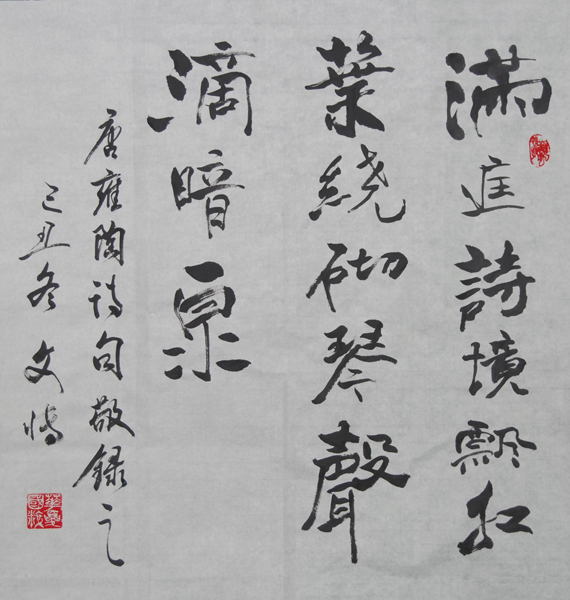 滿庭詩境飄紅
葉繞砌琴聲
滴暗泉
唐雍陶詩句敬録之
己丑冬文